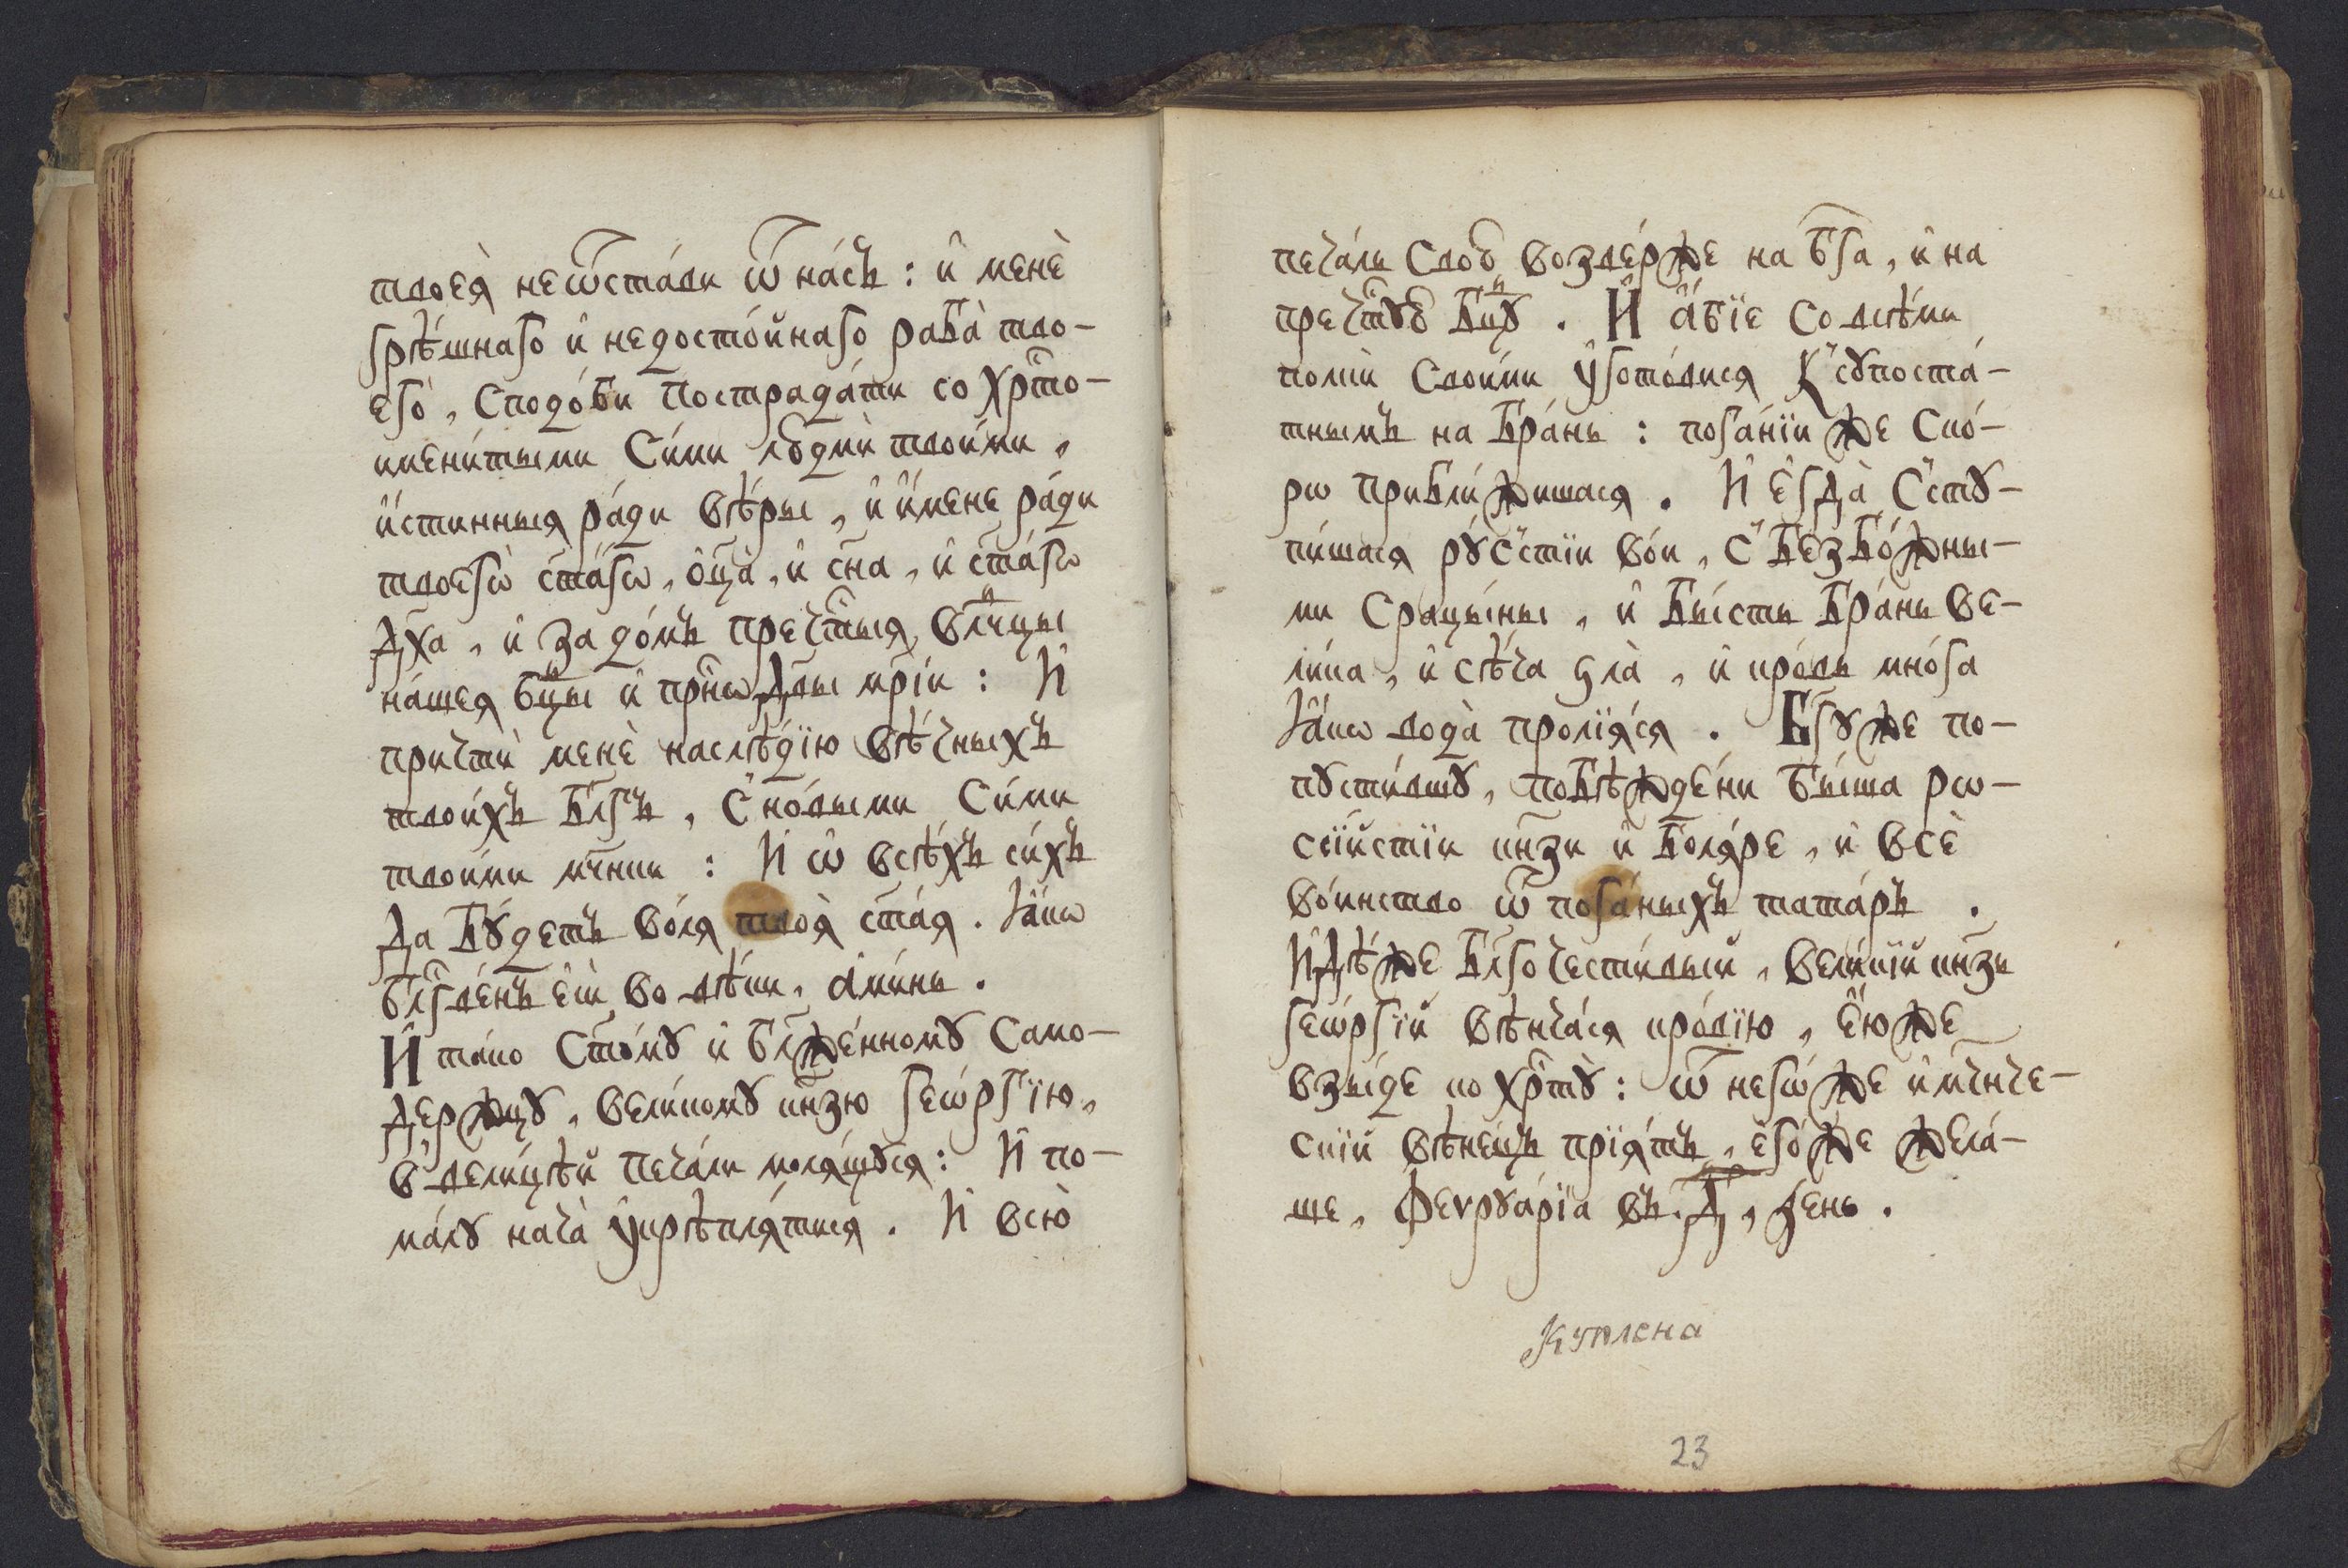 твоеѧ̀ неѿста́ви ѿ на́съ: и҆ менѐ
грѣ́шнаго и҆ недосто́йнаго раба̀ тво-
его̀, сподо́би пострада́ти со хрⷭ҇то-
имени́тыми си́ми людмѝ твои́ми,
и҆́стинныѧ ра́ди вѣ́ры, и҆ и҆́мене ра́ди
твоегѡ̀ ст҃а́гѡ, ѻ҆ц҃а̀, и҆ сн҃а, и҆ ст҃а́гѡ
дх҃а, и҆ за до́мъ пречⷭ҇тыѧ, влⷣчцы
на́шеѧ бцⷣы и҆ прⷭ҇нѡ дв҃ы мр҃і́и: И
причтѝ менѐ наслѣ́дїю вѣ́чныхъ
твои́хъ бл҃гъ, с̾ но́выми си́ми
твои́ми мч҃нки: И ѡ҆ всѣ́хъ си́хъ
да бꙋ́детъ во́лѧ твоѧ̀ ст҃а́ѧ. Ꙗ҆́кѡ
блⷭ҇гве́нъ є҆сѝ во вѣ́ки, а҆ми́нь.
И҆ та́ко ст҃о́мꙋ и҆ бл҃же́нномꙋ само-
де́ржцꙋ, вели́комꙋ кн҃зю геѡ́ргїю,
в̾ вели́цѣй печа́ли молѧ́щꙋсѧ: И по-
ма́лꙋ нача̀ ᲂу҆крѣплѧ́тисѧ. И всю̀
печа́ль свою̀ возве́рже на бг҃а, и҆ на
пречⷭ҇тꙋю бцⷣꙋ. И҆ а҆́бїе со всѣ́ми
полкѝ свои́ми ᲂу҆гото́висѧ к̾ сꙋпоста́-
тнымъ на бра́нь: пога́нїи же ско́-
рѡ прибли́жишасѧ. И є҆гда̀ с̾стꙋ-
пи́шасѧ рꙋ́с̾стїи во́и, с̾ безбо́жны-
ми срацы́ны, и҆ бы́сть бра́нь ве-
ли́ка, и҆ сѣ́ча ѕла̀, и҆ кро́вь мно́га
ꙗ҆́кѡ вода̀ пролїѧ́сѧ. Бг҃ꙋ же по-
пꙋсти́вшꙋ, побѣжде́ни бы́ша рѡ-
сі́йстїи кн҃зи и҆ болѧ́ре, и҆ всѐ
во́инство ѿ пога́ныхъ тата́ръ.
И҆дѣ́же бл҃гочести́вый, вели́кїй кн҃зь
геѡ́ргїй вѣнча́сѧ кро́вїю, є҆́юже
взы́де ко хрⷭ҇тꙋ̀: ѿ негѡ́же и҆ мч҃нче-
скїй вѣне́цъ прїѧ́тъ, є҆го́же жела́-
ше, феѵрꙋа́рїа въ. д҃, де́нь.
Куплена
23